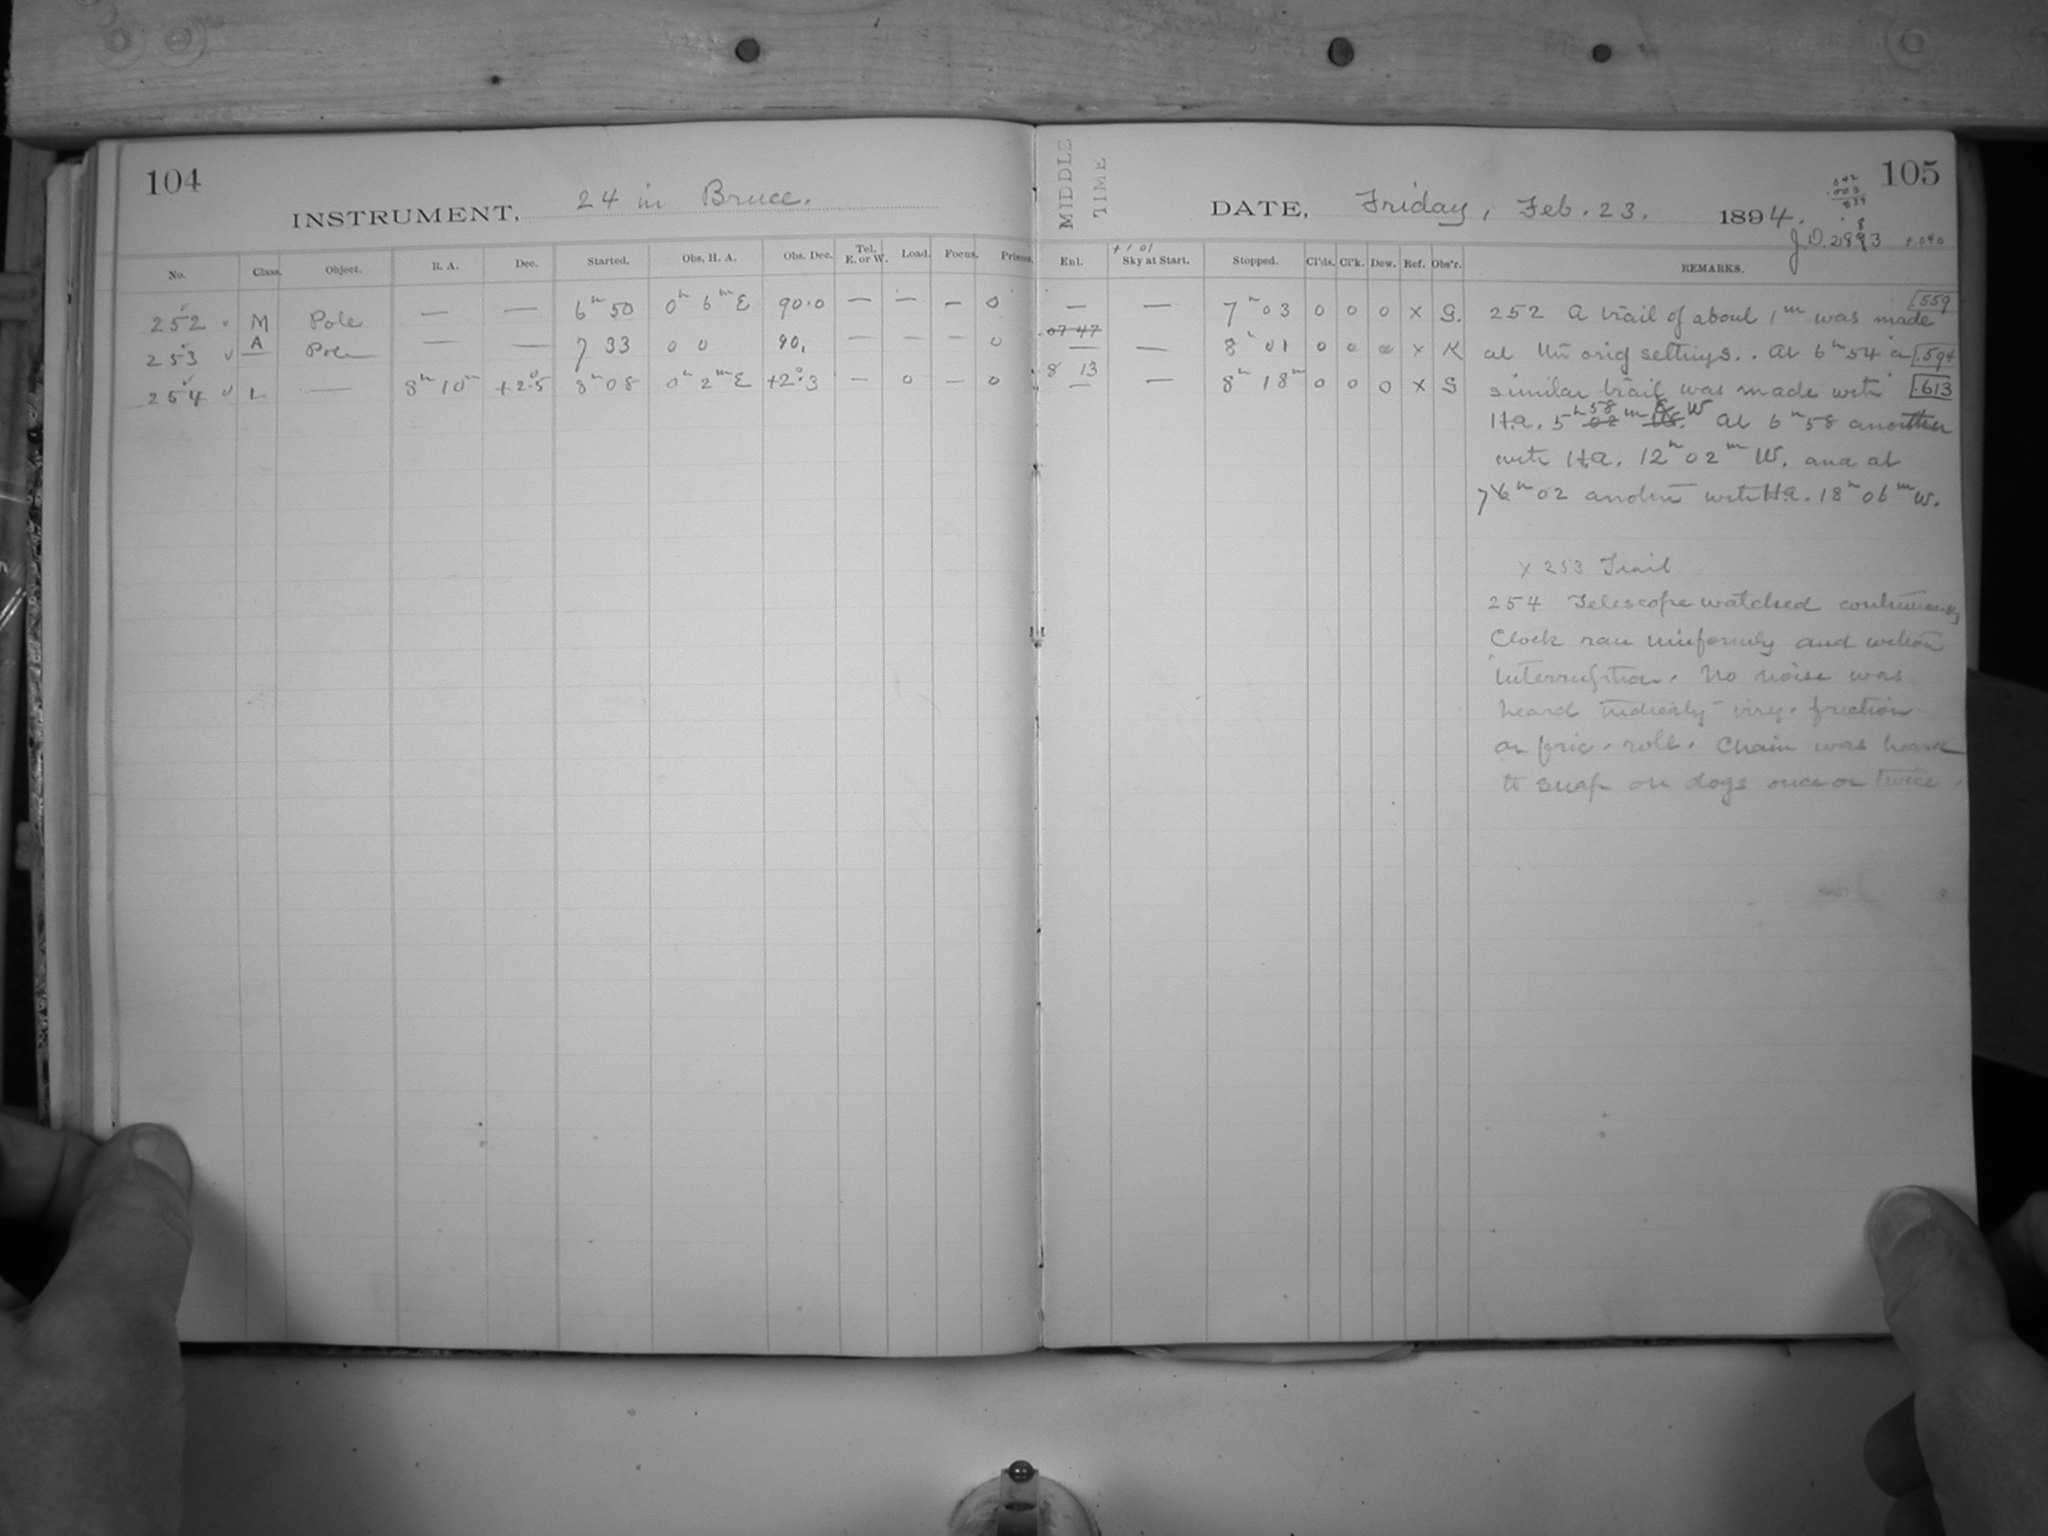 104
INSTRUMENT, 24 in Bruce.
No. Class. Object. R. A. Dec. Started. Obs. H. A. Obs. Dec. Tel. E. or W. Load. Focus. Prisms.
252 M Pole — — 6h 50 0h 6m E 90.0 — — — 0
253 A Pole — — 7 33 0 0 90. — — — 0
254 L — 8h 10m +2°.5 8h 08 0h 2m E +2°.3 — 0 — 0
MIDDLE
TIME
105
DATE, Friday, Feb. 23. 1894.
042
.003
039
8
J.D. 2893 +.040
+1 01
Enl. Sky at Start. Stopped. Cl'ds. Cl'k. Dew. Ref. Obs'r. REMARKS.
— — 7h 03 0 0 0 x G.
07 47
— — 8h 01 0 0 0 x K
8 13
— — 8h 18m 0 0 0 x G
.559
.594
.613
252 A trail of about 1m was made
at the orig settings. . At 6h 54 a
similar trail was made with
H.a. 5h 58 02 m W At 6h 58 another
with H.a. 12h 02m W. and at
7h 02 another with H.a. 18h 06m W.
x 253 Trail
254 Telescope watched continuously
Clock ran uniformly and without
interruption. No noise was
heard friction
on fric. roll. Chain was heard
to snap on dogs once or twice.